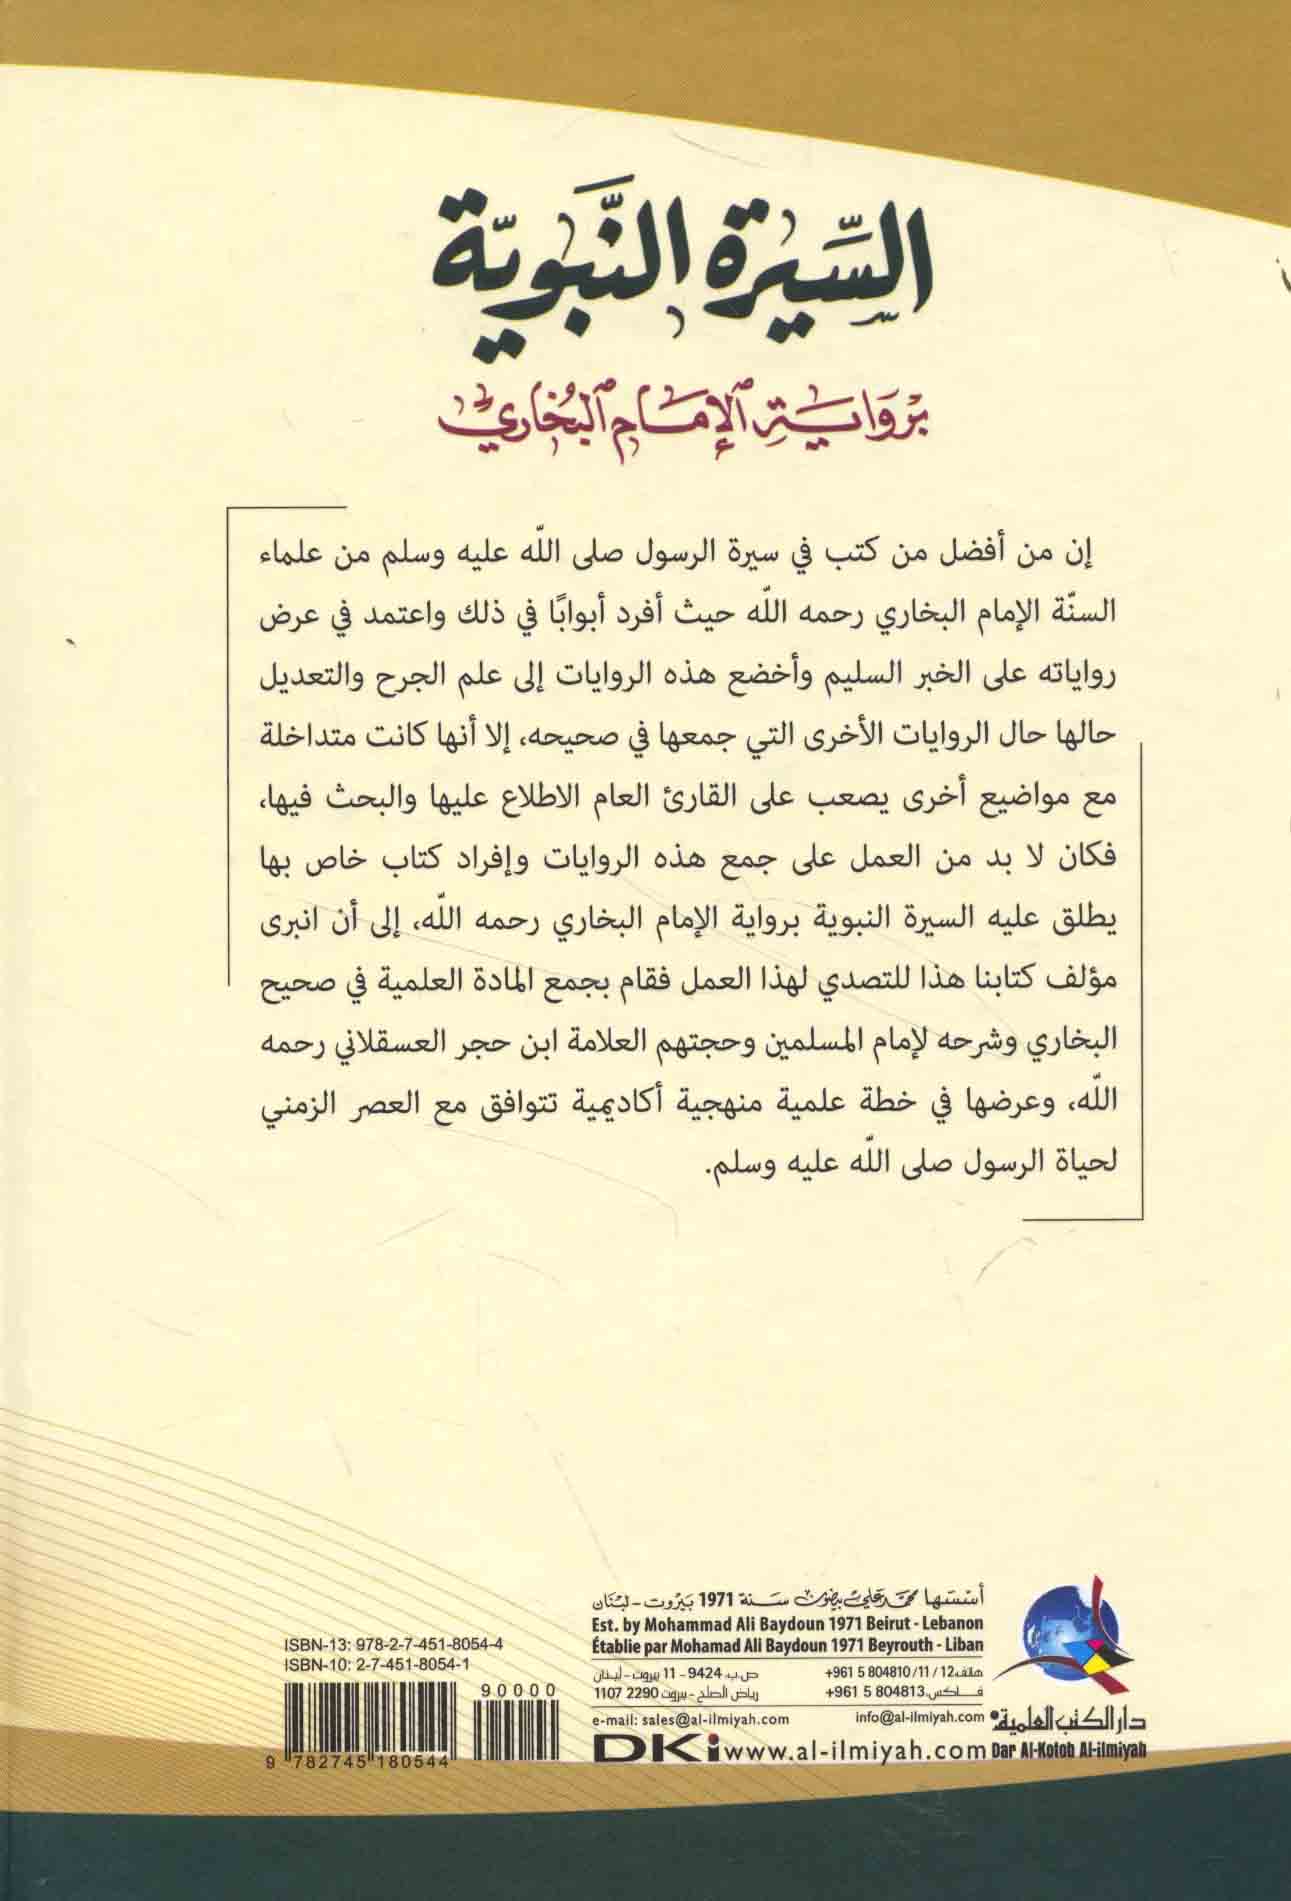 السِّيرة النَّبَويّة
بِرِوَايَةِ الإِمَامِ البُخَاري
إن من أفضل من كتب في سيرة الرسول صلى اللّٰه عليه وسلم من علماء
السنّة الإمام البخاري رحمه اللّٰه حيث أفرد أبوابًا في ذلك واعتمد في عرض
رواياته على الخبر السليم وأخضع هذه الروايات إلى علم الجرح والتعديل
حالها حال الروايات الأخرى التي جمعها في صحيحه، إلا أنها كانت متداخلة
مع مواضيع أخرى يصعب على القارئ العام الاطلاع عليها والبحث فيها،
فكان لا بد من العمل على جمع هذه الروايات وإفراد كتاب خاص بها
يطلق عليه السيرة النبوية برواية الإمام البخاري رحمه اللّٰه، إلى أن انبرى
مؤلف كتابنا هذا للتصدي لهذا العمل فقام بجمع المادة العلمية في صحيح
البخاري وشرحه لإمام المسلمين وحجتهم العلامة ابن حجر العسقلاني رحمه
اللّٰه، وعرضها في خطة علمية منهجية أكاديمية تتوافق مع العصر الزمني
لحياة الرسول صلى اللّٰه عليه وسلم.
أسسها محمد علي بيضون سنة 1971 بيروت - لبنان
Est. by Mohammad Ali Baydoun 1971 Beirut - Lebanon
Établie par Mohamad Ali Baydoun 1971 Beyrouth - Liban
هاتف: +961 5 804810 / 11 / 12 ص.ب: 9424 - 11 بيروت - لبنان
فاكس: +961 5 804813 رياض الصلح - بيروت 2290 1107
e-mail: sales@al-ilmiyah.com info@al-ilmiyah.com
DKi www.al-ilmiyah.com
دار الكتب العلمية
Dar Al-Kotob Al-ilmiyah
ISBN-13: 978-2-7-451-8054-4
ISBN-10: 2-7-451-8054-1
90000
9 782745 180544